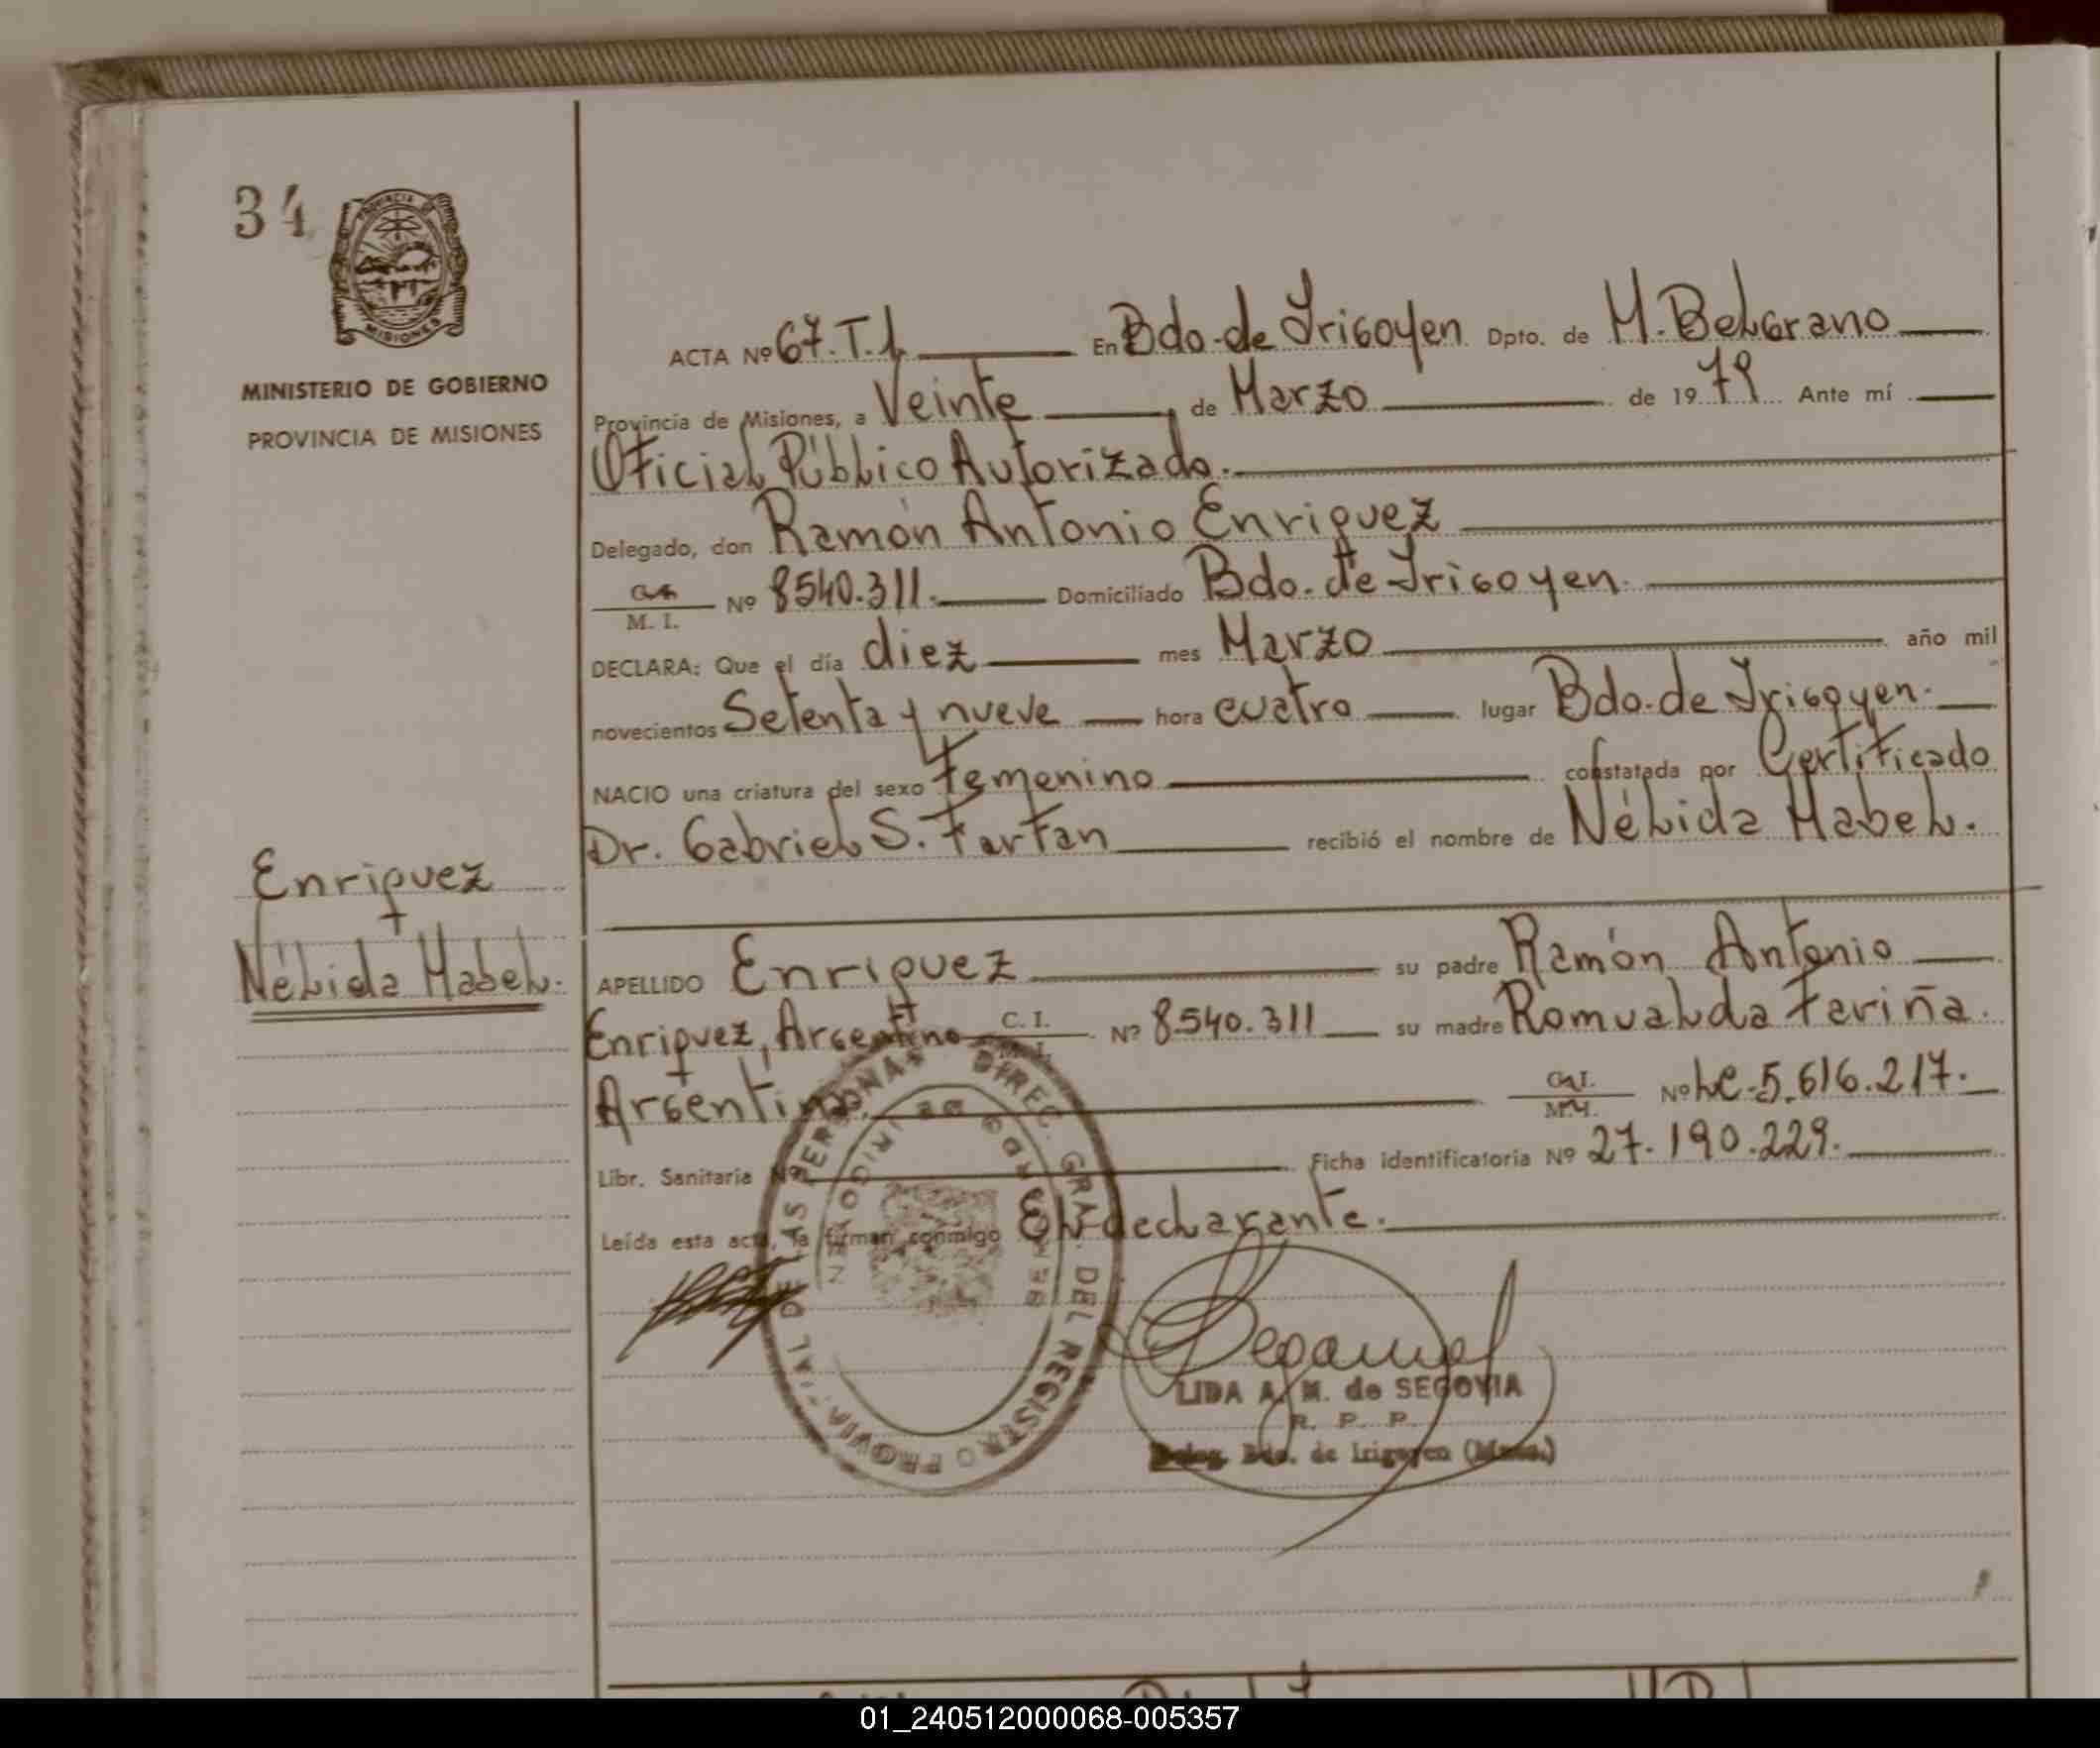 34
MINISTERIO DE GOBIERNO
PROVINCIA DE MISIONES
ACTA Nº 67.T.1 En Bdo. de Irigoyen Dpto. de M. Belgrano
Provincia de Misiones, a Veinte de Marzo de 1979 Ante mí
Oficial Público Autorizado.
Delegado, don Ramón Antonio Enriquez
M. I. Nº 8540.311. Domiciliado Bdo. de Irigoyen.
DECLARA: Que el día diez mes Marzo año mil
novecientos Setenta y nueve hora cuatro lugar Bdo. de Irigoyen.
NACIO una criatura del sexo Femenino constatada por Certificado
Dr. Gabriel S. Farfan recibió el nombre de Nélida Mabel.
Enriquez
Nélida Mabel.
APELLIDO Enriquez su padre Ramón Antonio
Enriquez, Argentino C. I. Nº 8.540.311 su madre Romualda Fariña.
Argentina. Nº LC-5.616.217.
Libr. Sanitaria Nº Ficha identificatoria Nº 27.190.229.
Leída esta acta, la firman conmigo El declarante.
DIREC. GRAL. DEL REGISTRO PROVINCIAL DE LAS PERSONAS
BERNARDO DE IRIGOYEN
LIDA A. M. de SEGOVIA
R. P. P.
Deleg. Bdo. de Irigoyen (Mnes.)
01_240512000068-005357